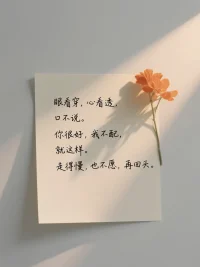 眼看穿，心看透，
口不说。
你很好，我不配，
就这样。
走得懂，也不愿，再回头。